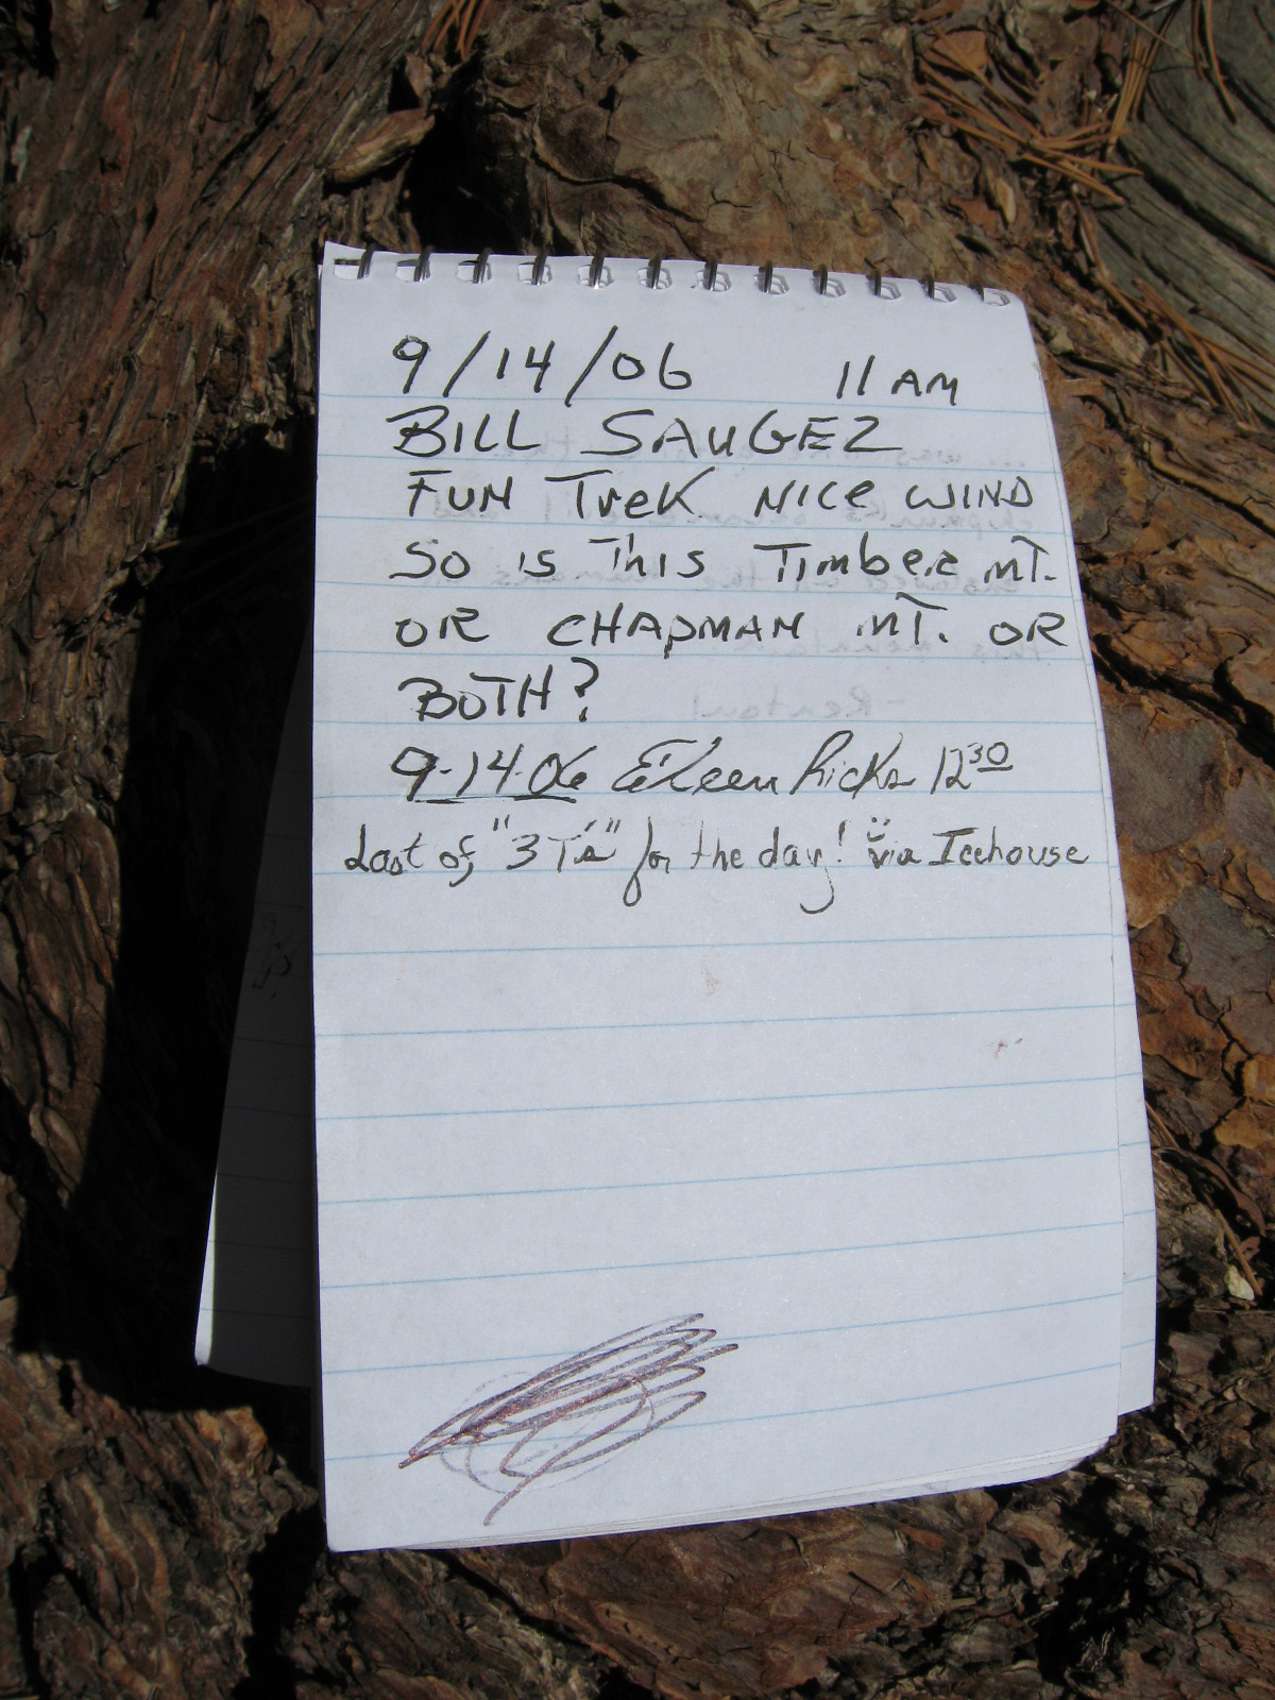 9/14/06 11 AM
BILL SAUGEZ
FUN TreK NICe WIND
SO IS This Timber MT.
OR CHAPMAN MT. OR
BOTH?
9-14-06 Eileen Ricks 12³⁰
Last of "3 T's" for the day! via Icehouse
-Kentow!